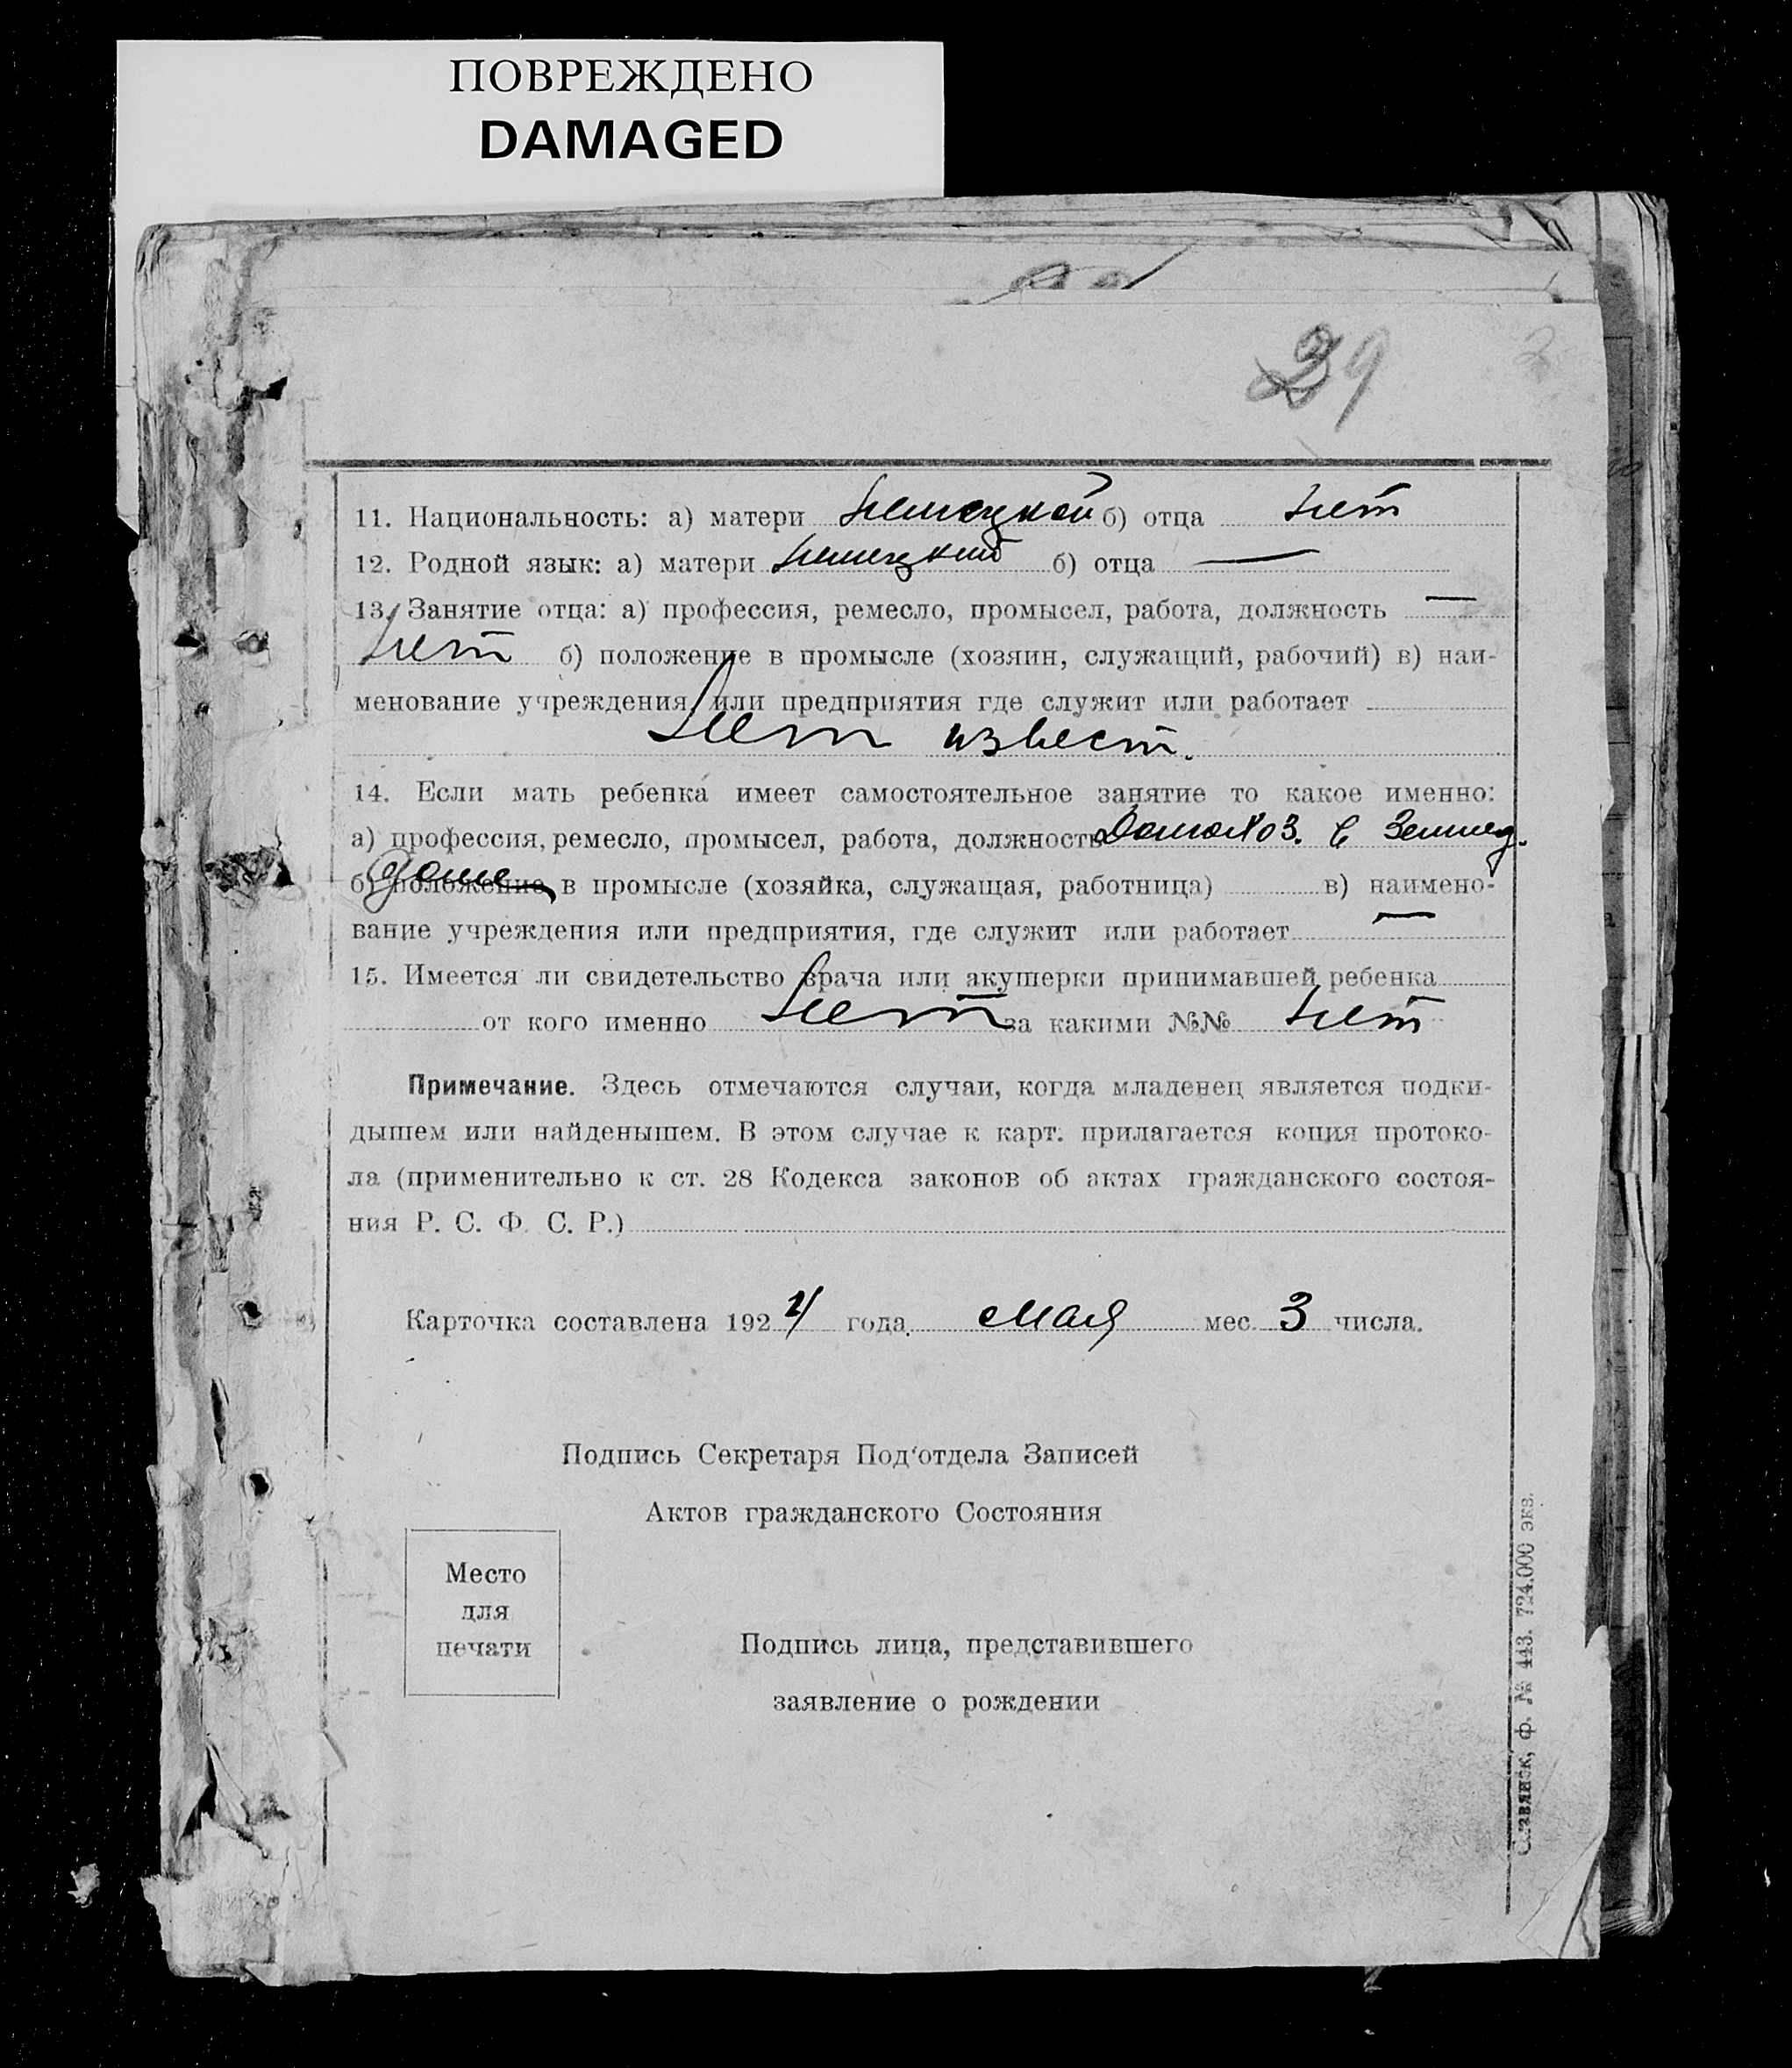 ПОВРЕЖДЕНО
DAMAGED
39
2
11. Национальность: а) матери немецкой б) отца нет
12. Родной язык: а) матери немецкий б) отца —
13. Занятие отца: а) профессия, ремесло, промысел, работа, должность —
нет б) положение в промысле (хозяин, служащий, рабочий) в) наи-
менование учреждения или предприятия где служит или работает
нет извест.
14. Если мать ребенка имеет самостоятельное занятие то какое именно:
а) профессия, ремесло, промысел, работа, должность Домохоз. в Земмед.
б) положение в промысле (хозяйка, служащая, работница) в) наимено-
вание учреждения или предприятия, где служит или работает —
15. Имеется ли свидетельство врача или акушерки принимавшей ребенка
от кого именно нет за какими №№ нет
Примечание. Здесь отмечаются случаи, когда младенец является подки-
дышем или найденышем. В этом случае к карт. прилагается копия протоко-
ла (применительно к ст. 28 Кодекса законов об актах гражданского состоя-
ния Р. С. Ф. С. Р.)
Карточка составлена 1924 года мая мес. 3 числа.
Подпись Секретаря Под'отдела Записей
Актов гражданского Состояния
Место
для
печати
Подпись лица, представившего
заявление о рождении
Славянск, ф. № 443. 724.000 экз.